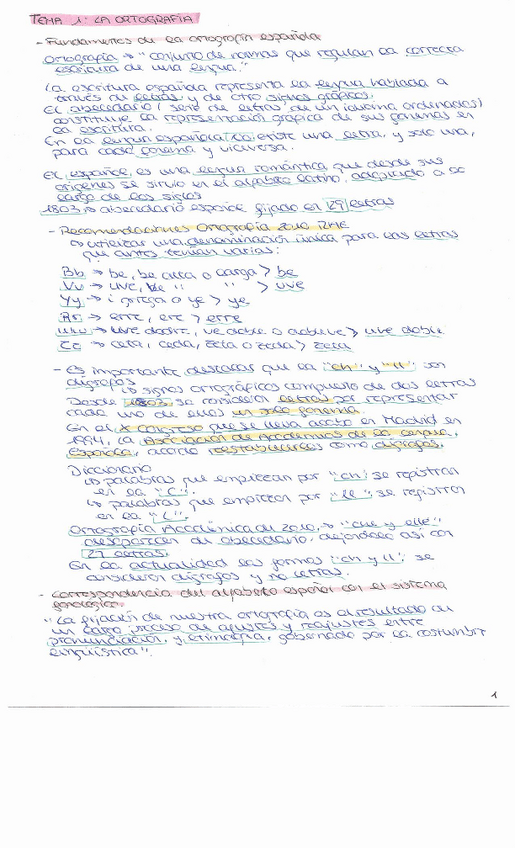 TEMA 1: LA ORTOGRAFÍA
- Fundamentos de la ortografía española
Ortografía → "conjunto de normas que regulan la correcta
escritura de una lengua."
La escritura española representa la lengua hablada a
través de letras y de otro signos gráficos.
El abecedario (serie de letras de un idioma ordenadas)
constituye la representación gráfica de sus fonemas en
la escritura.
En la lengua española existe una letra, y solo una,
para cada fonema y viceversa.
El español, es una lengua romántica que desde sus
orígenes se sirvió en el alfabeto latino, adaptado a lo
largo de los siglos
1803 → abecedario español fijado en 29 letras
- Recomendaciones Ortografía 2010 RAE
↳ utilizar una denominación única para las letras
que antes tenían varias:
Bb → be, be alta o larga > be
Vv → uve, be " " > uve
Yy → i griega o ye > ye
Rr → erre, ere > erre
Ww → uve doble, ve doble o doble u > uve doble
Zz → ceta, ceda, zeta o zeda > zeta
- Es importante destacar que la "ch" y "ll" son
dígrafos
↳ signos ortográficos compuesto de dos letras
Desde 1803 se consideran letras por representar
cada uno de ellas un solo fonema.
En el X congreso que se lleva acabo en Madrid en
1994, la Asociación de Academias de la Lengua
Española, acordo reestablecerlos como dígrafos.
Diccionario
↳ palabras que empiezan por "ch" se registran
en la "C".
↳ palabras que empiezan por "ll" se registran
en la "L".
Ortografía Académica de 2010, → "che y elle"
desaparecen del abecedario, dejándolo así con
27 letras.
En la actualidad las formas "ch y ll" se
consideran dígrafos y no letras.
- Correspondencia del alfabeto español con el sistema
fonológico.
"La fijación de nuestra ortografía es el resultado de
un largo proceso de ajustes y reajustes entre
pronunciación, y etimología, gobernado por la costumbre
lingüística".
1